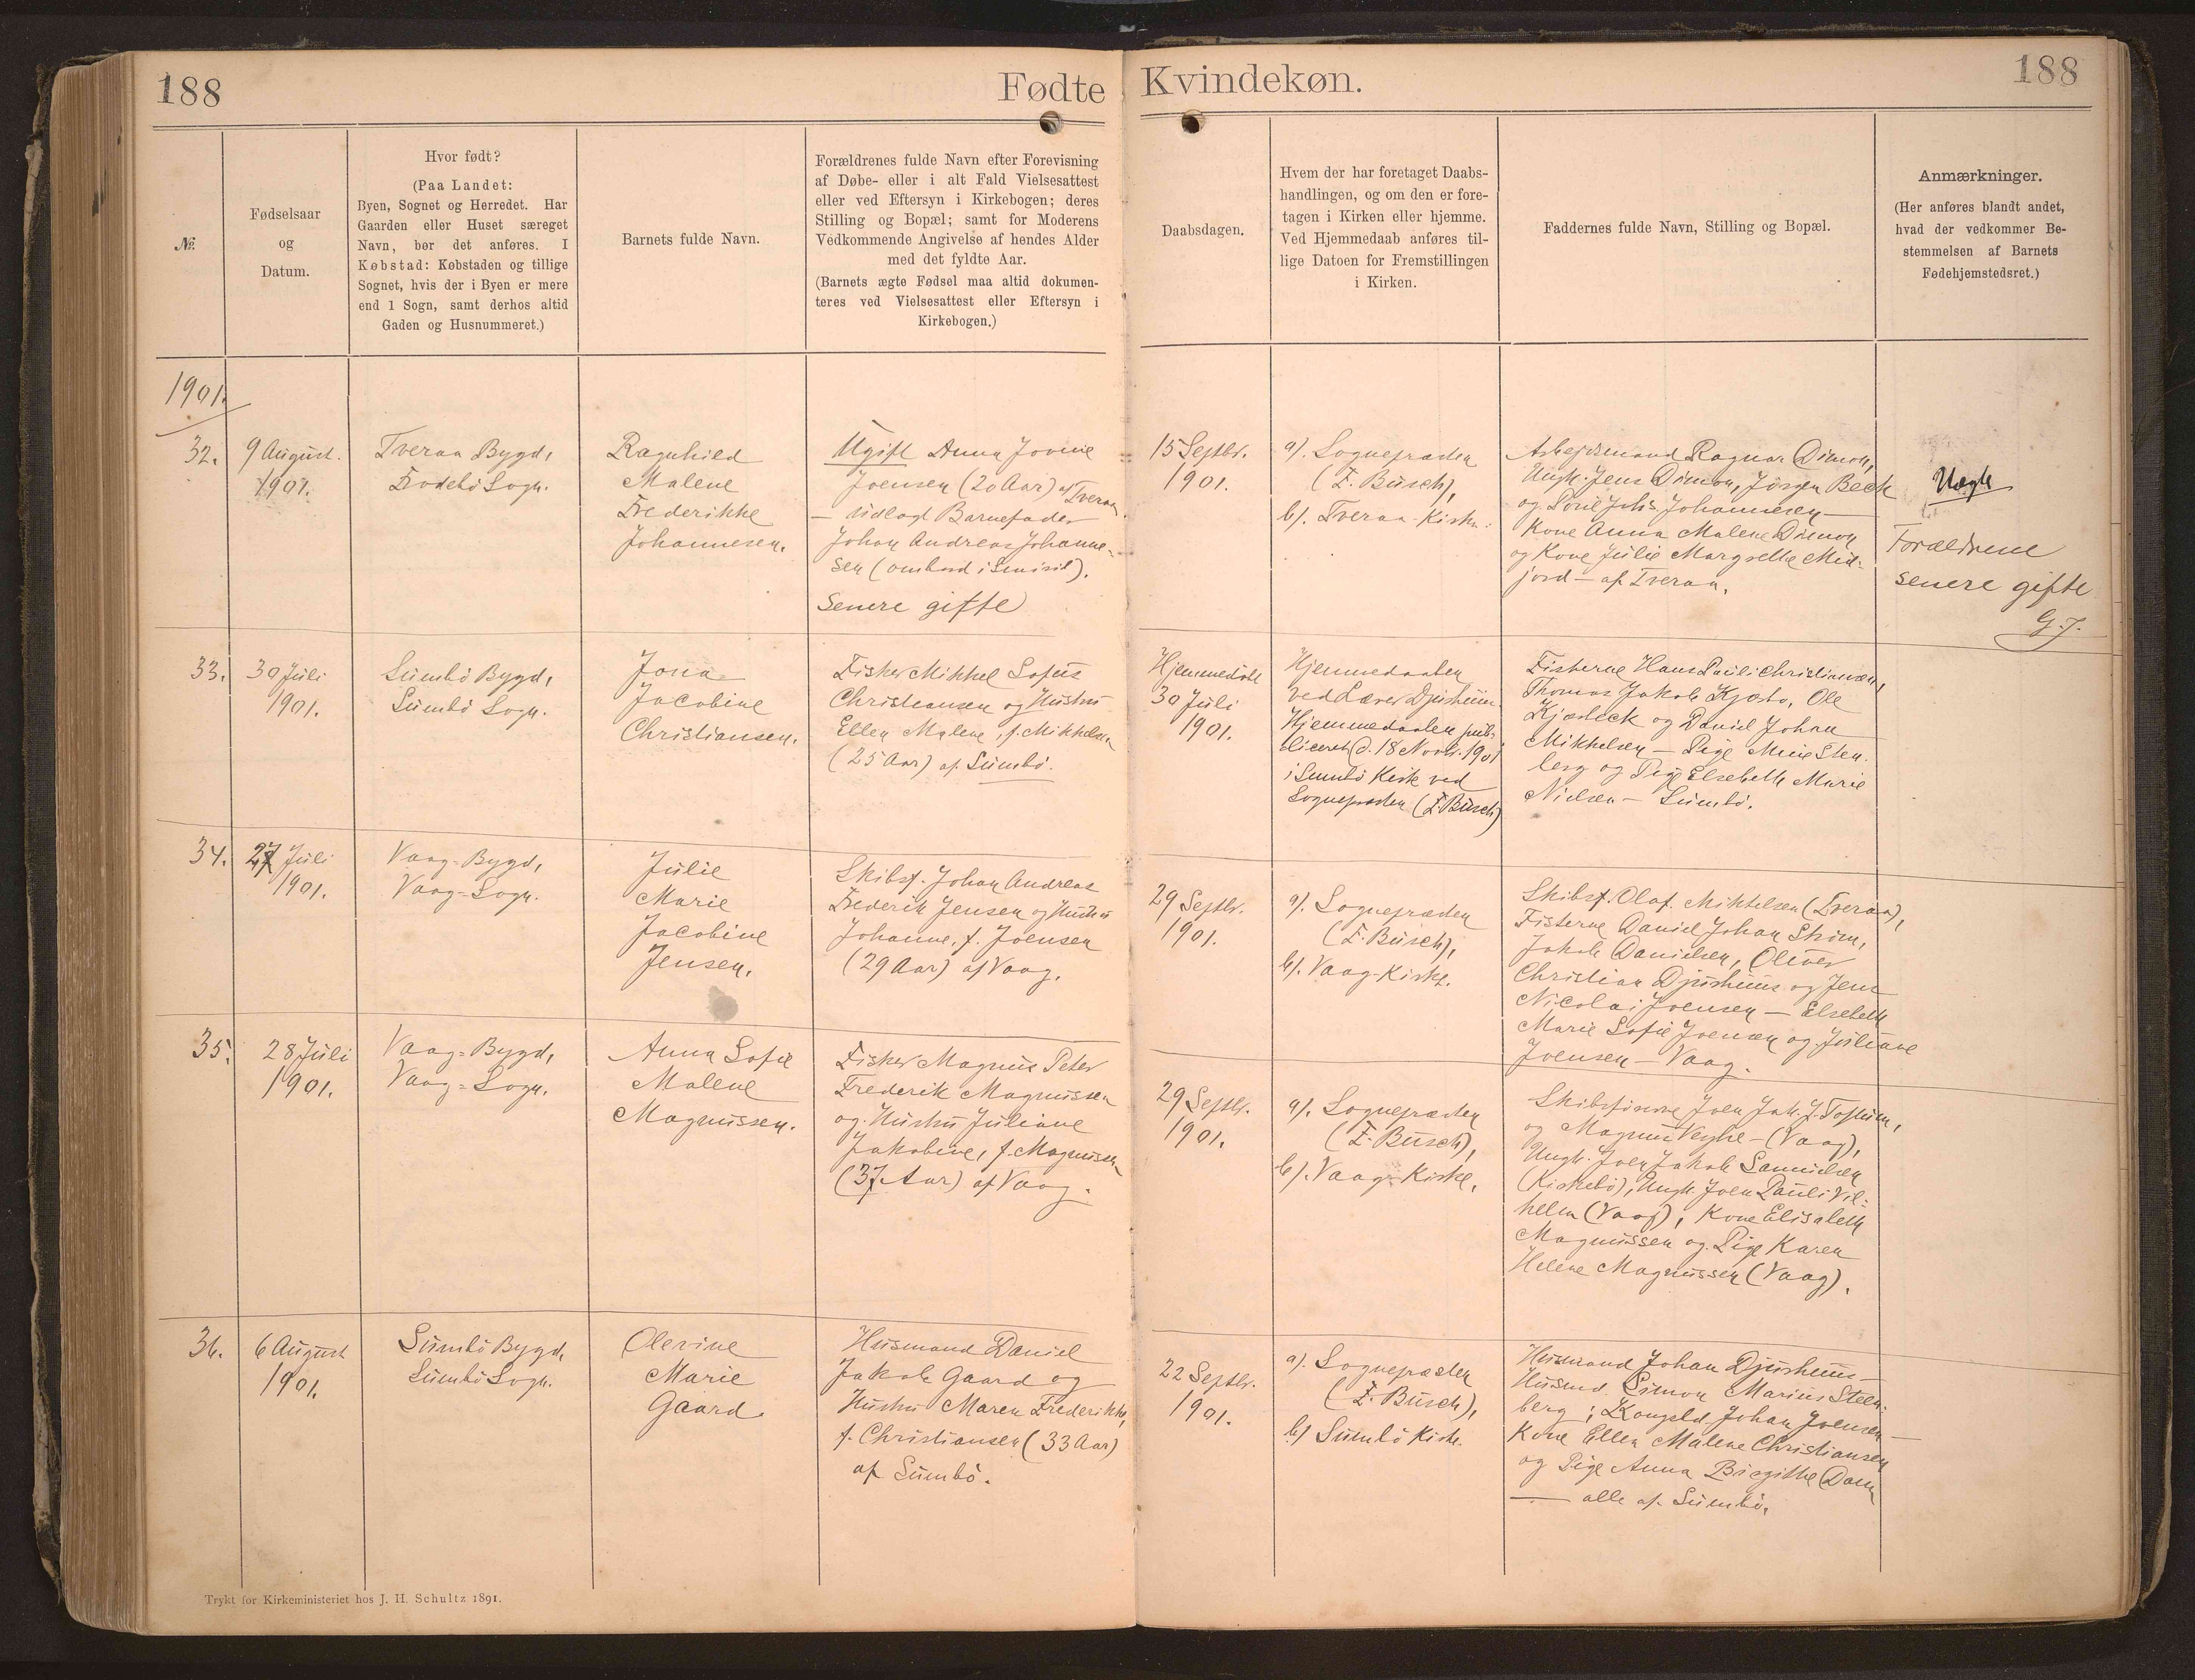 188
Fødte
Kvindekøn.
188
№
Fødselsaar
og
Datum.
Hvor født?
(Paa Landet:
Byen, Sognet og Herredet. Har
Gaarden eller Huset særeget
Navn, bør det anføres. I
Købstad: Købstaden og tillige
Sognet, hvis der i Byen er mere
end 1 Sogn, samt derhos altid
Gaden og Husnummeret.)
Barnets fulde Navn.
Forældrenes fulde Navn efter Forevisning
af Døbe- eller i alt Fald Vielsesattest
eller ved Eftersyn i Kirkebogen; deres
Stilling og Bopæl; samt for Moderens
Vedkommende Angivelse af hendes Alder
med det fyldte Aar.
(Barnets ægte Fødsel maa altid dokumen-
teres ved Vielsesattest eller Eftersyn i
Kirkebogen.)
Daabsdagen.
Hvem der har foretaget Daabs-
handlingen, og om den er fore-
tagen i Kirken eller hjemme.
Ved Hjemmedaab anføres til-
lige Datoen for Fremstillingen
i Kirken.
Faddernes fulde Navn, Stilling og Bopæl.
Anmærkninger.
(Her anføres blandt andet,
hvad der vedkommer Be-
stemmelsen af Barnets
Fødehjemstedsret.)
1901.
32.
9 August.
1901.
Tveraa Bygd,
Frodebö Sogn.
Ragnhild
Malene
Frederikke
Johannesen.
Ugift Anna Jovine
Joensen (20 Aar) af Tveraa
— udlagt Barnefader
Johan Andreas Johanne-
sen (ombord i "Smiril").
Senere gifte
15 Septbr.
1901.
a). Sognepræsten
(F. Busch),
b). Tveraa-Kirke.
Arbejdsmand Ragnar Dimon,
Ungk. Jens Dimon, Jörgen Beck
og Johannesen —
Kone Anna Malene Dimon
og Kone Julie Margrethe Mid-
jord — af Tveraa.
Uægte
Forældrene
senere gifte
G.J.
33.
30 Juli
1901.
Sumbö Bygd,
Sumbö Sogn.
Jona
Jacobine
Christiansen.
Fisker Mikkel Sofus
Christiansen og Hustru
Ellen Malene, f. Mikkelsen
(25 Aar) af Sumbö.
Hjemmedöbt
30 Juli
1901.
Hjemmedaaben
ved Lærer Djurhuus.
Hjemmedaaben pub-
liceret d. 18 Novbr. 1901
i Sumbö Kirke ved
Sognepræsten (F. Busch)
Fiskerne Hans Pauli Christiansen,
Thomas Jakob Kjærbo, Ole
Kjærbeck og Daniel Johan
Mikkelsen — Pige Mine Sten-
berg og Pige Elsebeth Marie
Nielsen — Sumbö.
34.
27 Juli
1901.
Vaag-Bygd,
Vaag-Sogn.
Julie
Marie
Jacobine
Jensen.
Skibsf. Johan Andreas
Frederik Jensen og Hustru
Johanne, f. Joensen
(29 Aar) af Vaag.
29 Septbr.
1901.
a). Sognepræsten
(F. Busch),
b). Vaag-Kirke.
Skibsf. Olaf Mikkelsen (Tveraa),
Fiskerne Daniel Johan Ström,
Jakob Danielsen, Oliver
Christian Djurhuus og Jens
Nicolai Joensen — Elsebeth
Marie Sofie Joensen og Juliane
Joensen — Vaag.
35.
28 Juli
1901.
Vaag-Bygd,
Vaag-Sogn.
Anna Sofie
Malene
Magnussen.
Fisker Magnus Peter
Frederik Magnussen
og Hustru Juliane
Jakobine, f. Magnussen
(37 Aar) af Vaag.
29 Septbr.
1901.
a). Sognepræsten
(F. Busch),
b). Vaag-Kirke.
Skibsförerne Joen Jak. J.
og Magnus Veyhe — (Vaag),
Ungk. Joen Jakob Samuelsen
(Kirkebö), Ungk. Joen Pauli Vil-
helm (Vaag), Kone Elisabeth
Magnussen og Pige Karen
Helene Magnussen (Vaag).
36.
6 August
1901.
Sumbö Bygd,
Sumbö Sogn.
Olevine
Marie
Gaard.
Husmand Daniel
Jakob Gaard og
Hustru Maren Frederikke,
f. Christiansen (33 Aar)
af Sumbö.
22 Septbr.
1901.
a). Sognepræsten
(F. Busch),
b) Sumbö Kirke.
Husmand Johan Djurhuus —
Husmd. Simon Marius Steen-
berg; Kongsbd. Johan Joensen —
Kone Ellen Malene Christiansen
og Pige Anna Birgithe Dam
— alle af Sumbö.
Trykt for Kirkeministeriet hos J. H. Schultz 1891.